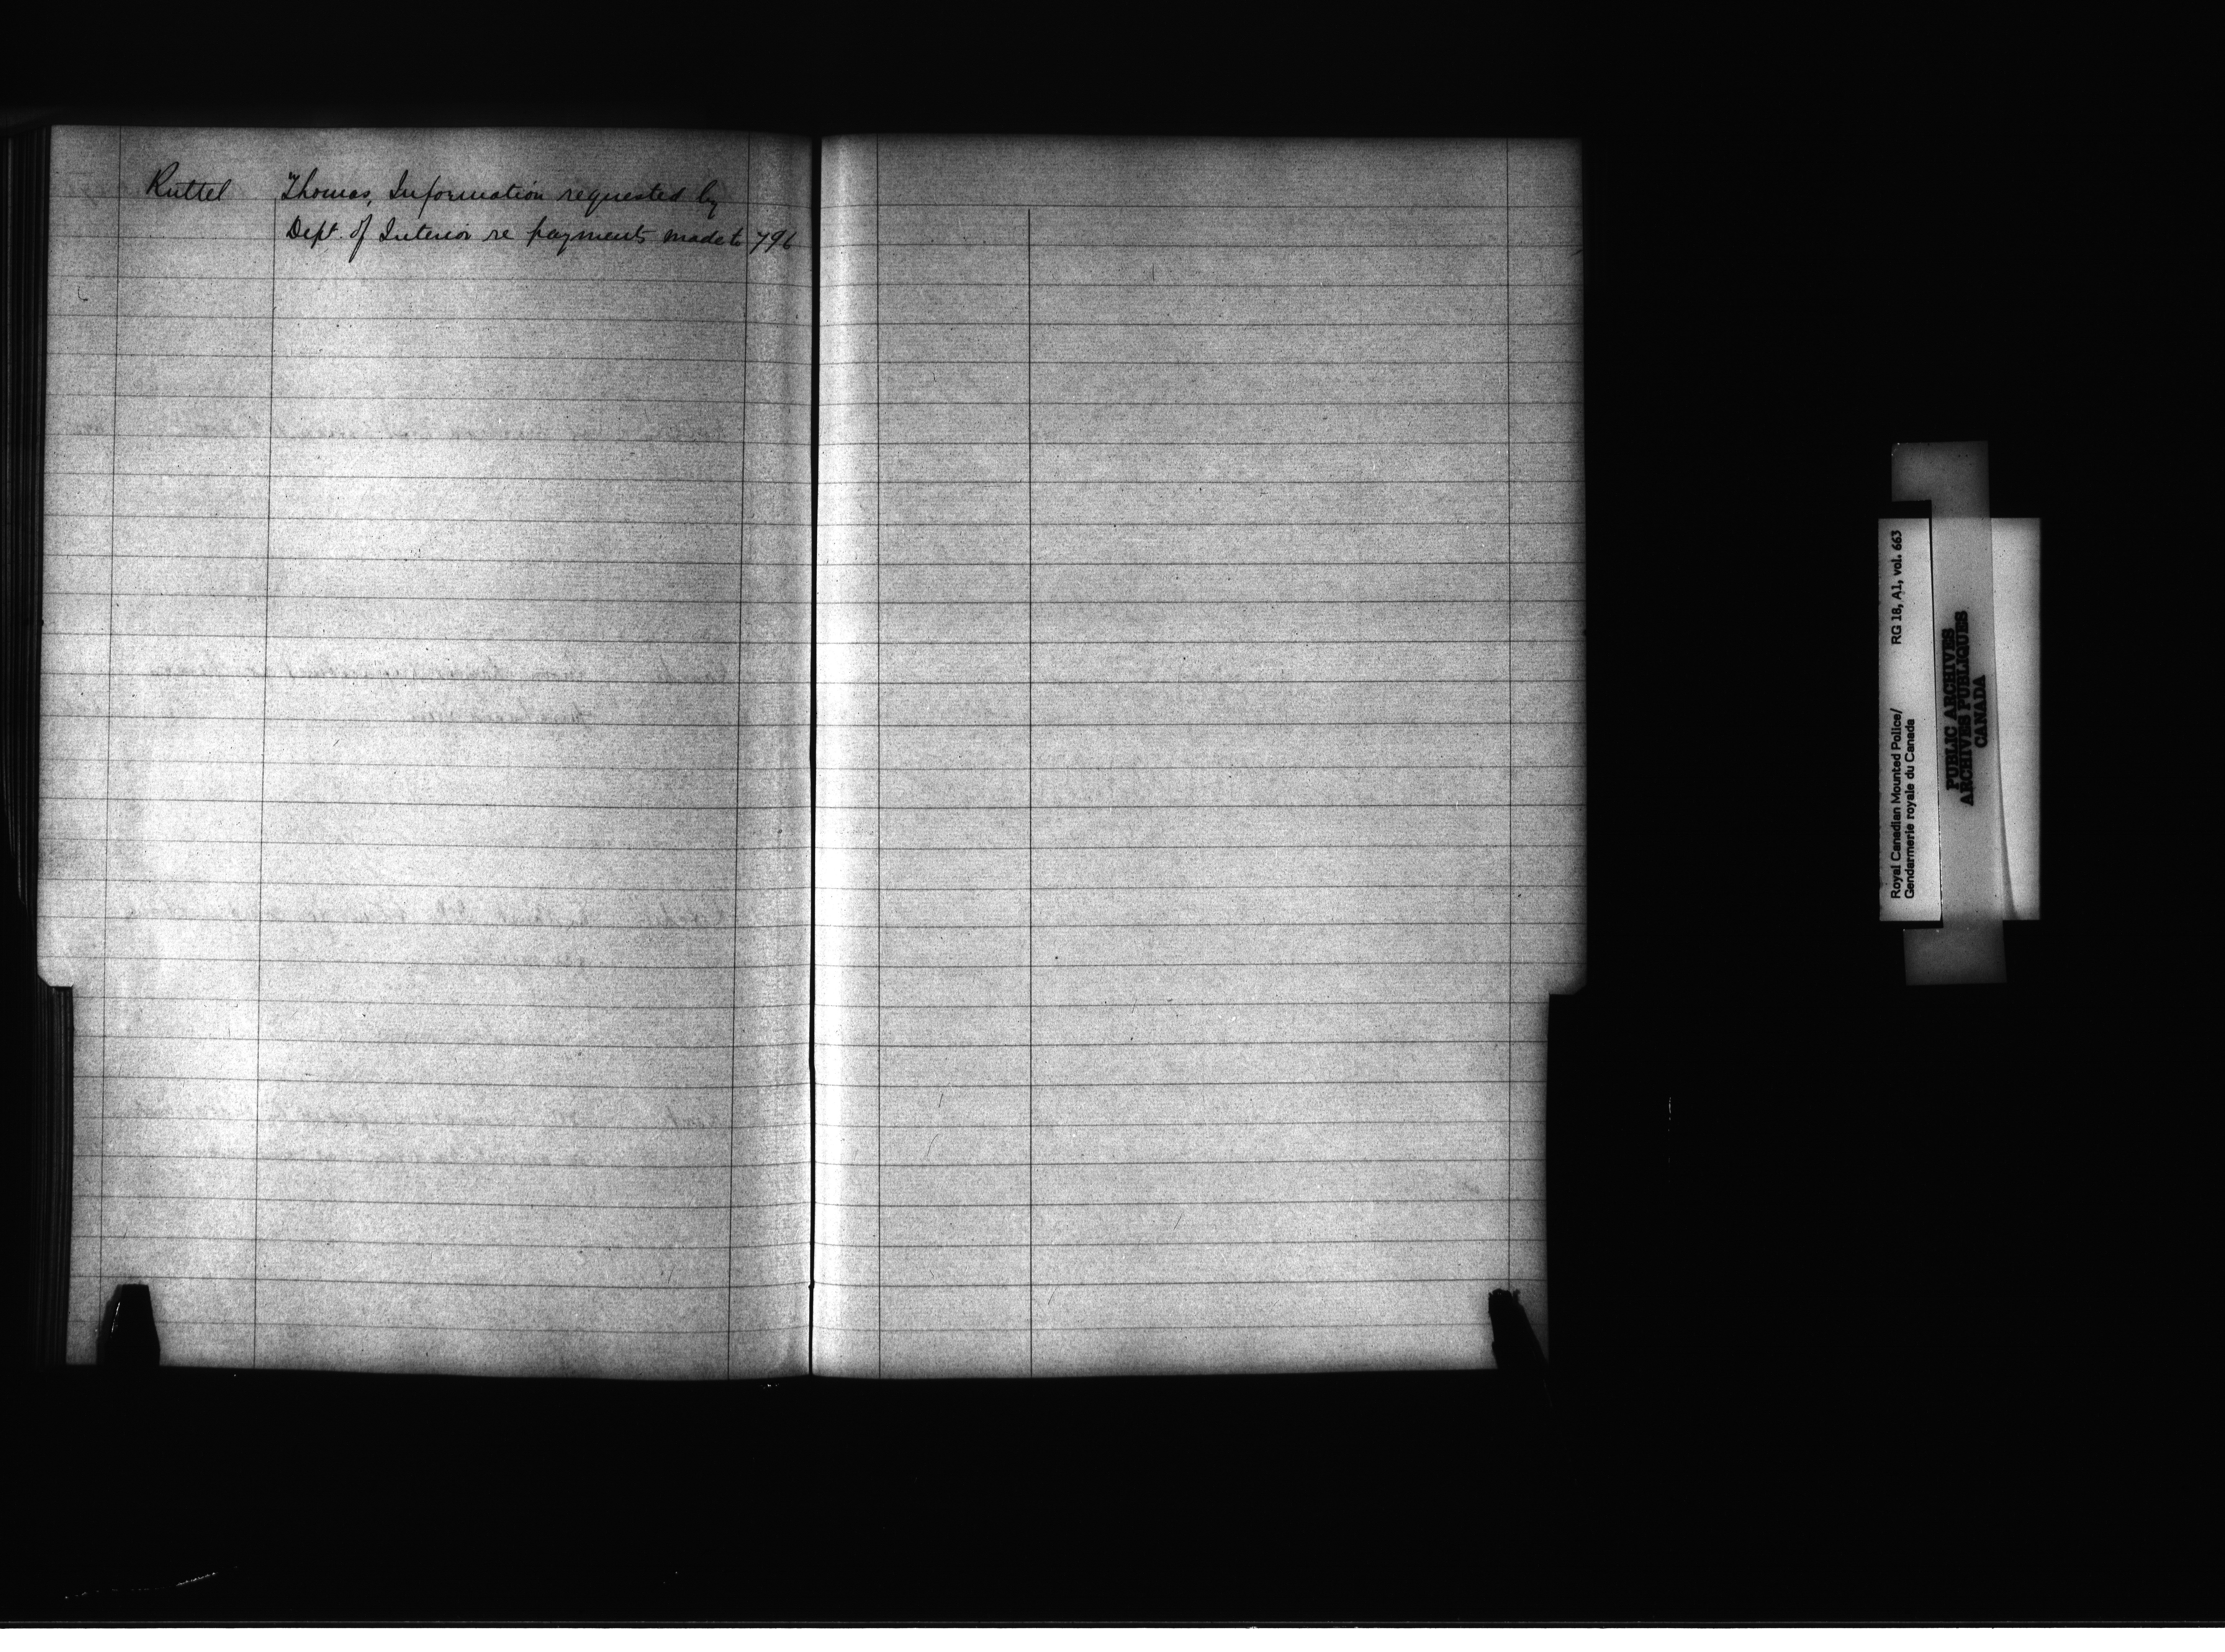 Ruttel Thomas, Information requested by
Dept. of Interior re payments made to 796
Royal Canadian Mounted Police/ RG 18, A1, vol. 663
Gendarmerie royale du Canada
PUBLIC ARCHIVES
ARCHIVES PUBLIQUES
CANADA